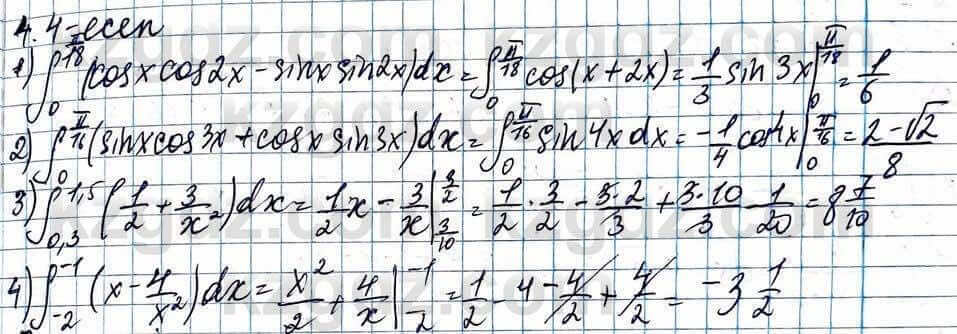 4.4-есеп
1) ∫₀^{π/18} (cosx cos2x - sinx sin2x)dx = ∫₀^{π/18} cos(x + 2x) = 1/3 sin 3x |₀^{π/18} = 1/6
2) ∫₀^{π/16} (sinx cos3x + cosx sin3x)dx = ∫₀^{π/16} sin4x dx = -1/4 cos4x |₀^{π/16} = (2-√2)/8
3) ∫_{0,3}^{1,5} (1/2 + 3/x²)dx = 1/2 x - 3/x |_{3/10}^{3/2} = 1/2 · 3/2 - 3·2/3 + 3·10/3 - 1/20 = 8 7/10
4) ∫_{-2}^{-1} (x - 4/x²)dx = x²/2 + 4/x |_{-2}^{-1} = 1/2 - 4 - 4/2 + 4/2 = -3 1/2